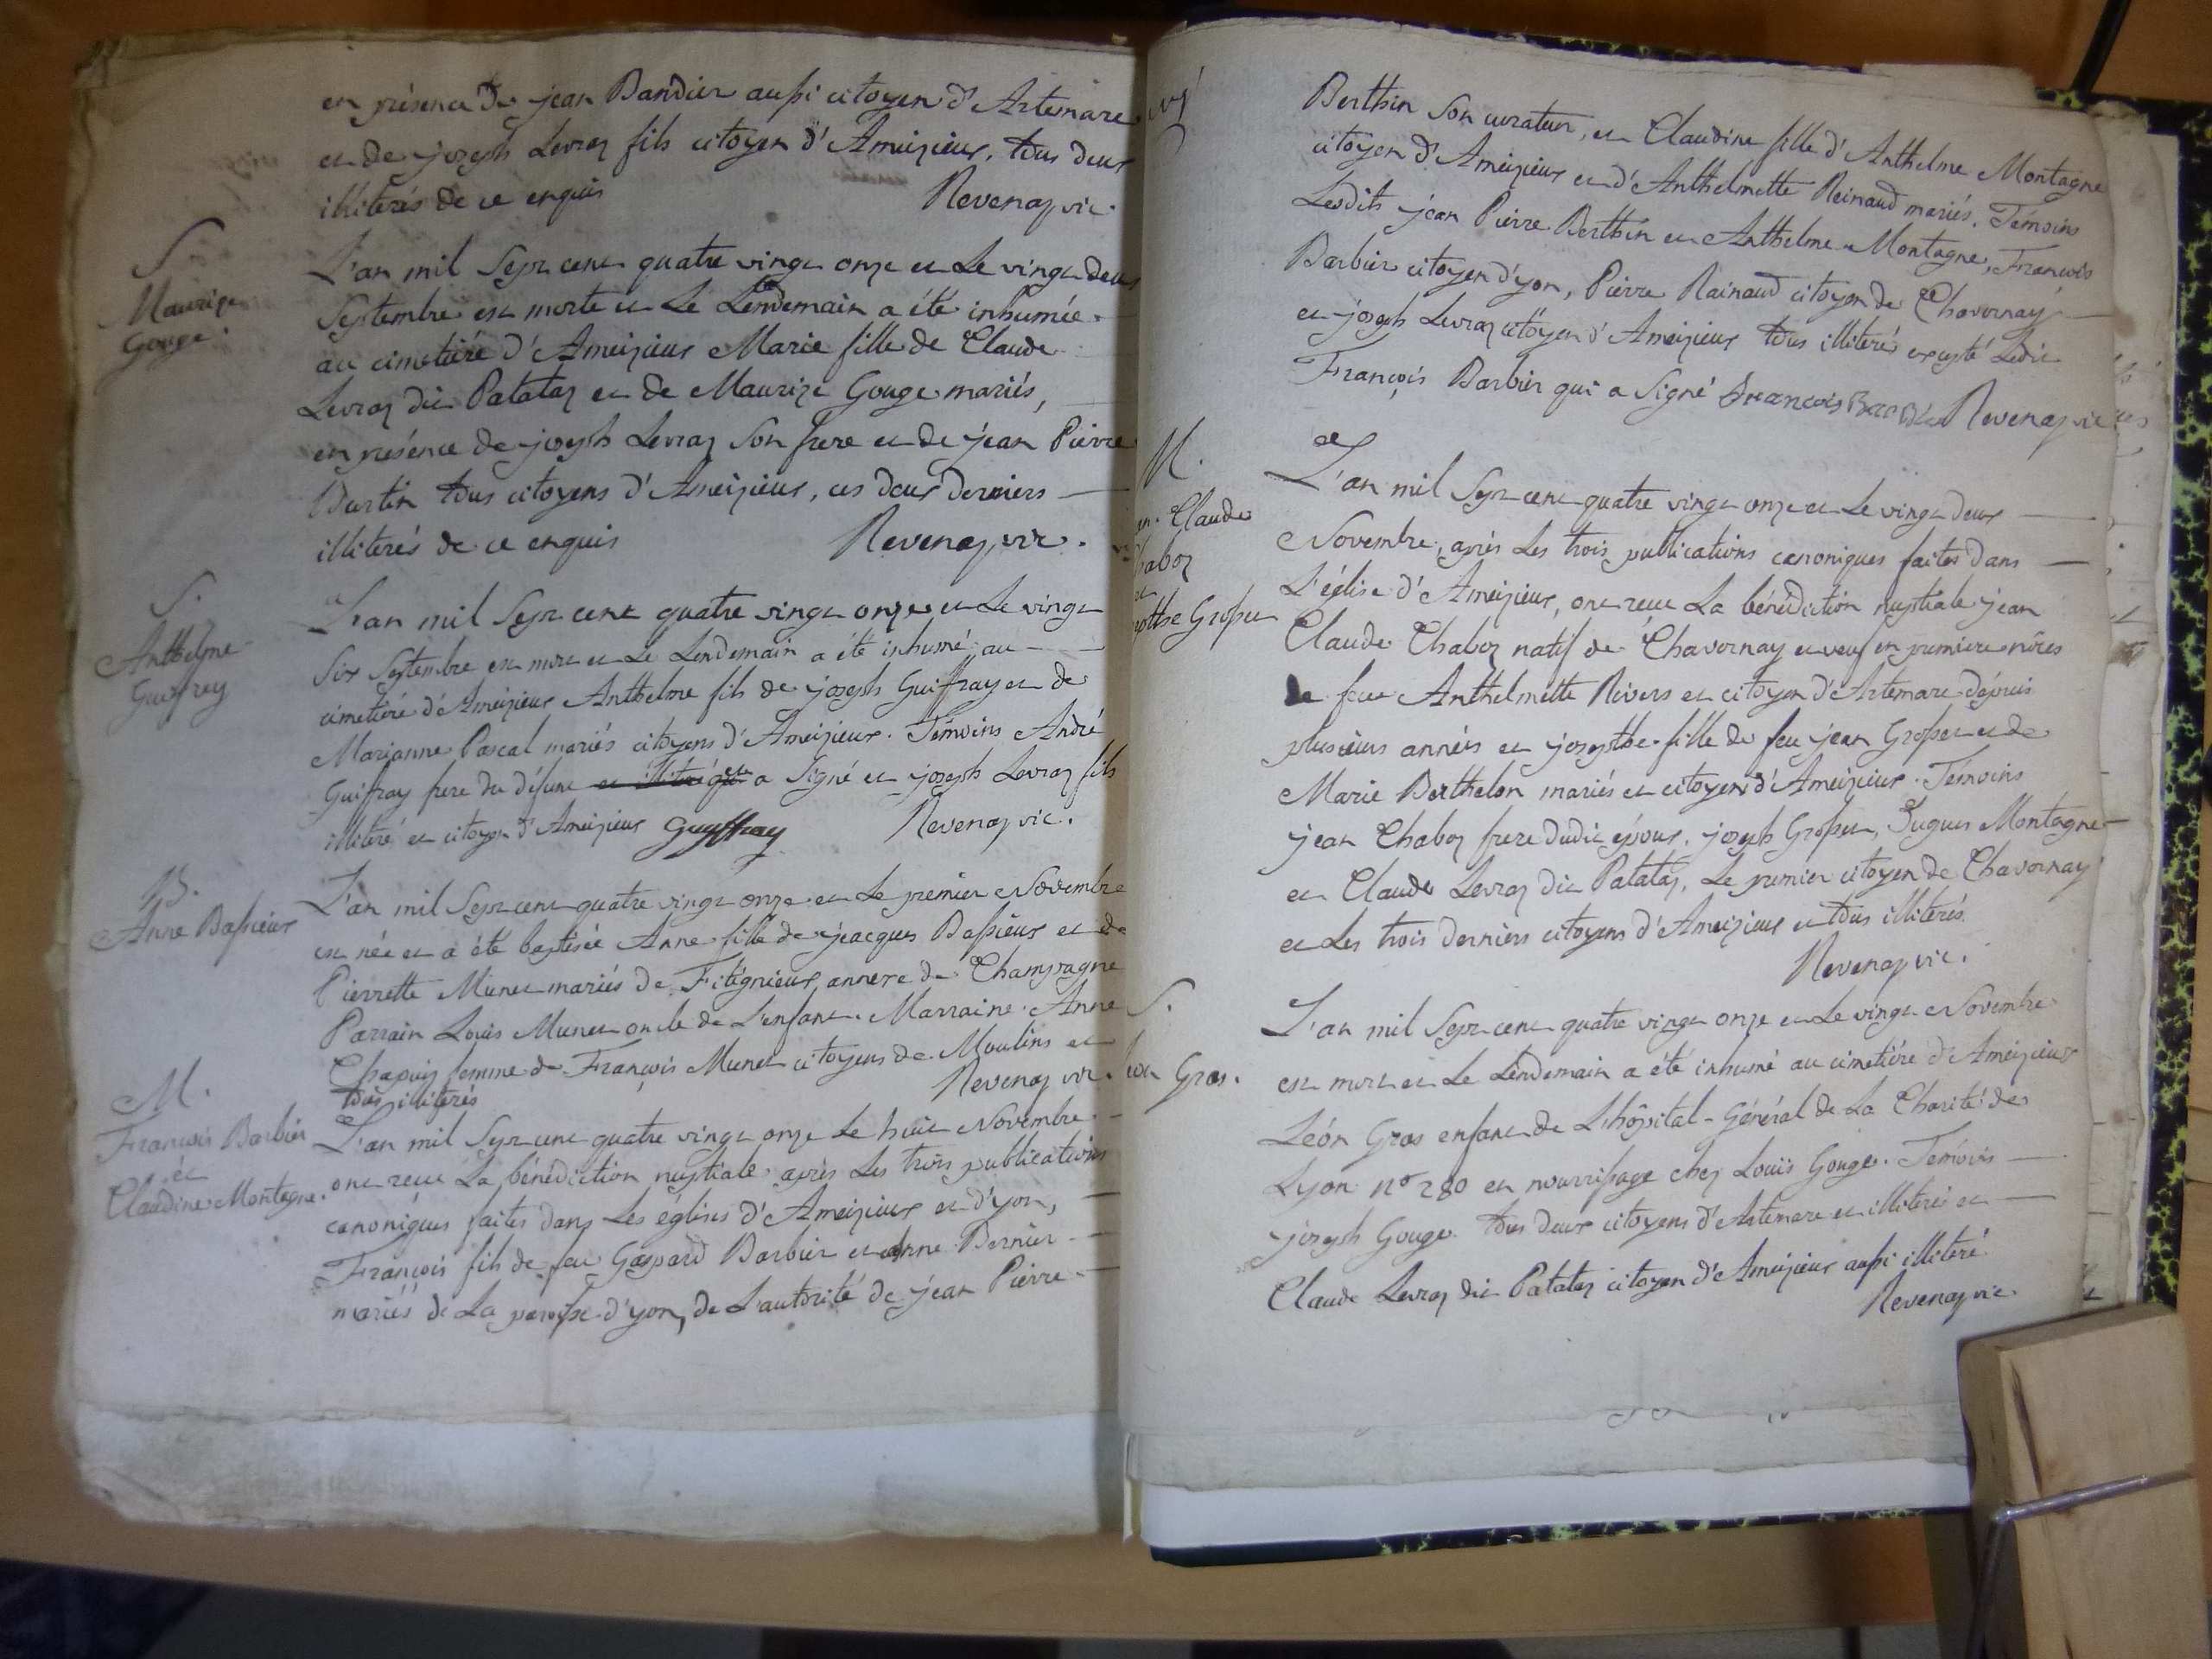 en présence de jean Bandier aussi citoyen d'Artemare
et de joseph Levraz fils citoyen d'Ameizieux, tous deux
illiterés de ce enquis Revenaz vic.
S
Maurize
Gouge.
L'an mil Sept cent quatre vingt onze et Le vingt deux
Septembre est morte et Le Lendemain a été inhumée
au cimetière d'Ameizieux Marie fille de Claude
Levraz dit Patataz et de Maurize Gouge mariés,
en présence de joseph Levraz Son frere et de jean Pierre
Burtin tous citoyens d'Ameizieux, ces deux derniers
illiterés de ce enquis Revenaz vic.
S.
Anthelme
Guiffrey
L'an mil Sept cent quatre vingt onze et Le vingt
Six Septembre est mort et Le Lendemain a été inhumé au
cimetière d'Ameizieux Anthelme fils de joseph Guiffray et de
Marianne Pascal mariés citoyens d'Ameizieux. Témoins André
Guiffray frere du défunt et illiteré qui a Signé et joseph Levraz fils
illiteré et citoyen d'Ameizieux Guyffray Revenaz vic.
B.
Anne Bassieux
L'an mil Sept cent quatre vingt onze et Le premier Novembre
est née et a été baptisée Anne fille de jacques Bassieux et de
Pierrette Munet mariés de Fitignieux, annexe de Champagne
Parrain Louis Munet oncle de L'enfant. Marraine Anne
Chapuis femme de François Munet citoyens de Moulins et
tous illiterés Revenaz vic.
M.
François Barbier
et
Claudine Montagne.
L'an mil Sept cent quatre vingt onze Le huit Novembre
ont reçu La bénédiction nuptiale après Les trois publications
canoniques faites dans Les églises d'Ameizieux et d'yon,
François fils de feu Gaspard Barbier et Anne Bernier
mariés de La paroisse d'yon, de L'autorité de jean Pierre
Berthin Son curateur, et Claudine fille d'Anthelme Montagne
citoyen d'Ameizieux et d'Anthelmette Reinaud mariés. Témoins
Lesdits jean Pierre Berthin et Anthelme Montagne, François
Barbier citoyen d'yon, Pierre Rainaud citoyen de Chavornay
et joseph Levraz citoyen d'Ameizieux tous illiterés excepté Ledit
François Barbier qui a Signé francois Barbier Revenaz vic
M.
Claude
Chaboz
et
Grosset
L'an mil Sept cent quatre vingt onze et Le vingt deux
Novembre, après Les trois publications canoniques faites dans
L'église d'Ameizieux, ont reçu La bénédiction nuptiale jean
Claude Chaboz natif de Chavornay et veuf en premiere nôces
de feue Anthelmette Rivers et citoyen d'Artemare depuis
plusieurs années et josepthe fille de feu jean Grosset et de
Marie Berthelon mariés et citoyens d'Ameizieux. Témoins
jean Chaboz frere dudit époux, joseph Grosset, Hugues Montagne
et Claude Levraz dit Patataz, Le premier citoyen de Chavornay
et Les trois derniers citoyens d'Ameizieux et tous illiterés.
Revenaz vic.
S.
Gras.
L'an mil Sept cent quatre vingt onze et Le vingt Novembre
est mort et Le Lendemain a été inhumé au cimetière d'Ameizieux
Léon Gras enfant de L'hôpital-Général de La Charité de
Lyon n° 280 en nourrissage chez Louis Gouge. Témoins
joseph Gouge tous deux citoyens d'Artemare et illiterés et
Claude Levraz dit Patataz citoyen d'Ameizieux aussi illiteré.
Revenaz vic.